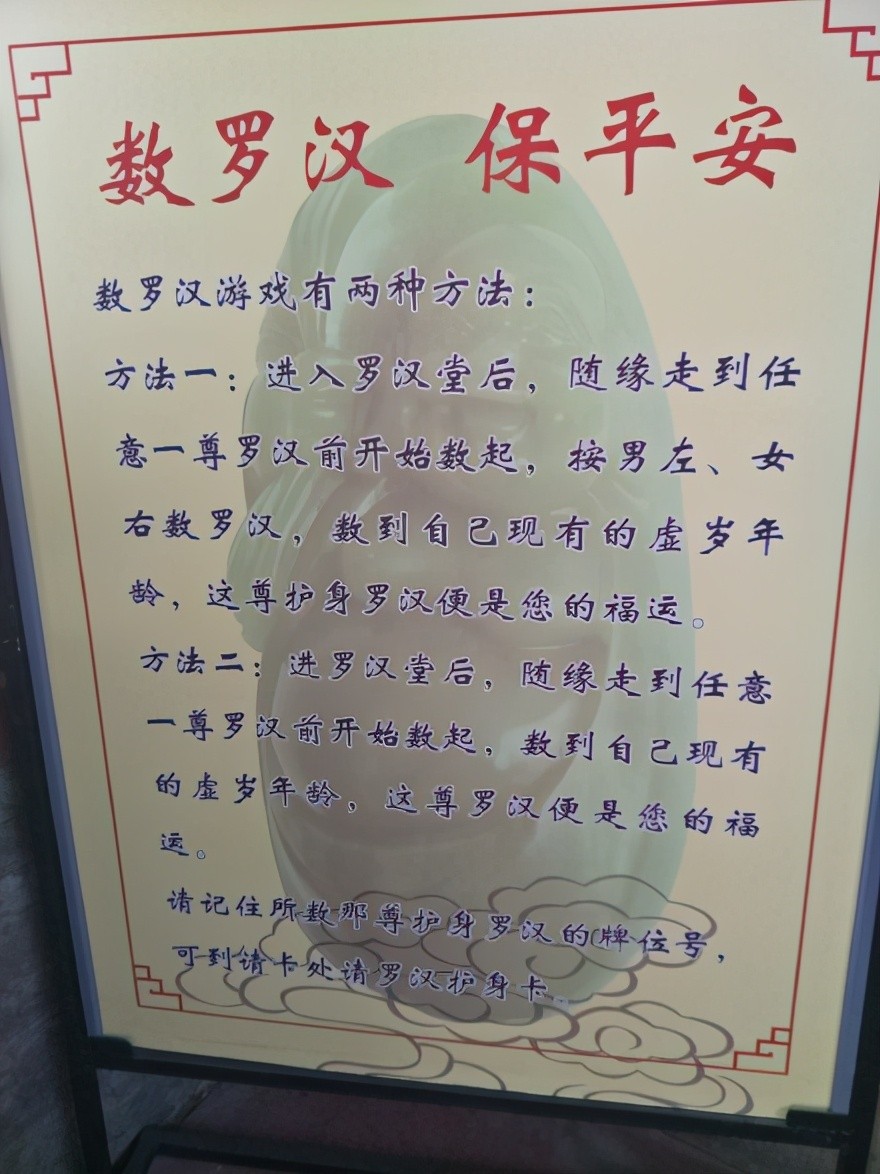 数罗汉 保平安
数罗汉游戏有两种方法：
方法一：进入罗汉堂后，随缘走到任
意一尊罗汉前开始数起，按男左、女
右数罗汉，数到自己现有的虚岁年
龄，这尊护身罗汉便是您的福运。
方法二：进罗汉堂后，随缘走到任意
一尊罗汉前开始数起，数到自己现有
的虚岁年龄，这尊罗汉便是您的福
运。
请记住所数那尊护身罗汉的牌位号，
可到请卡处请罗汉护身卡。